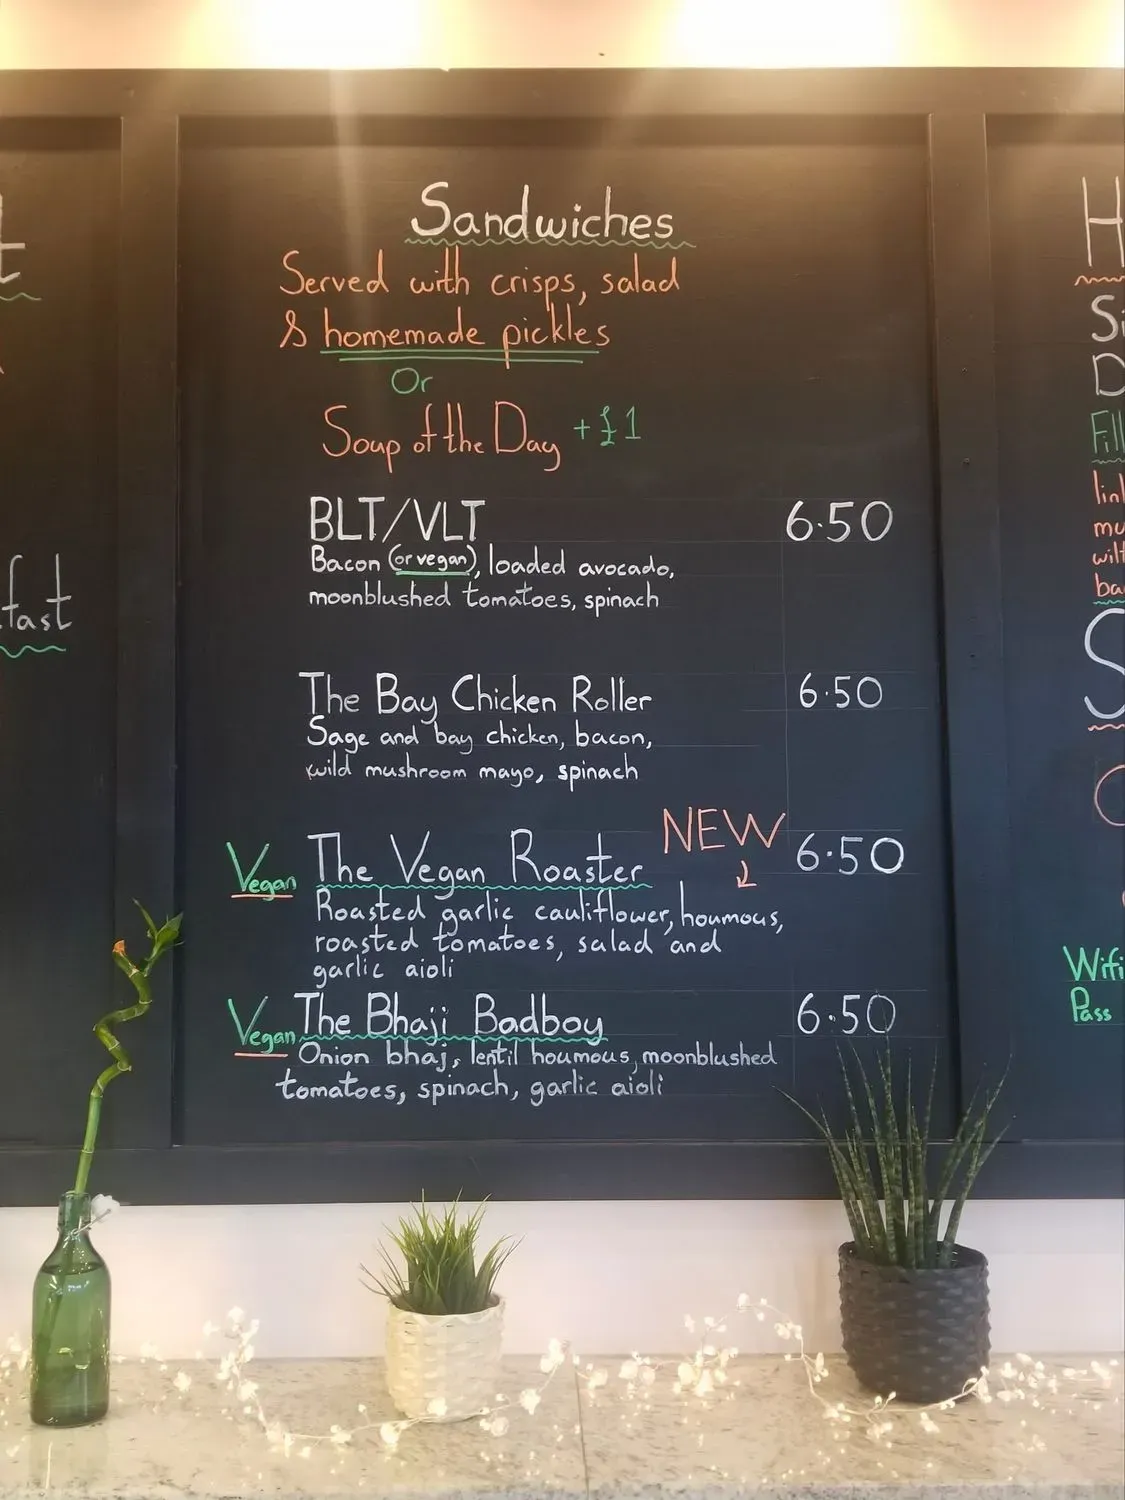 Sandwiches
Served with crisps, salad
& homemade pickles
Or
Soup of the Day +£1
BLT/VLT 6.50
Bacon (or vegan), loaded avocado,
moonblushed tomatoes, spinach
The Bay Chicken Roller 6.50
Sage and bay chicken, bacon,
wild mushroom mayo, spinach
NEW
Vegan The Vegan Roaster 6.50
Roasted garlic cauliflower, houmous,
roasted tomatoes, salad and
garlic aioli
Vegan The Bhaji Badboy 6.50
Onion bhaj, lentil houmous, moonblushed
tomatoes, spinach, garlic aioli
Wifi
Pass